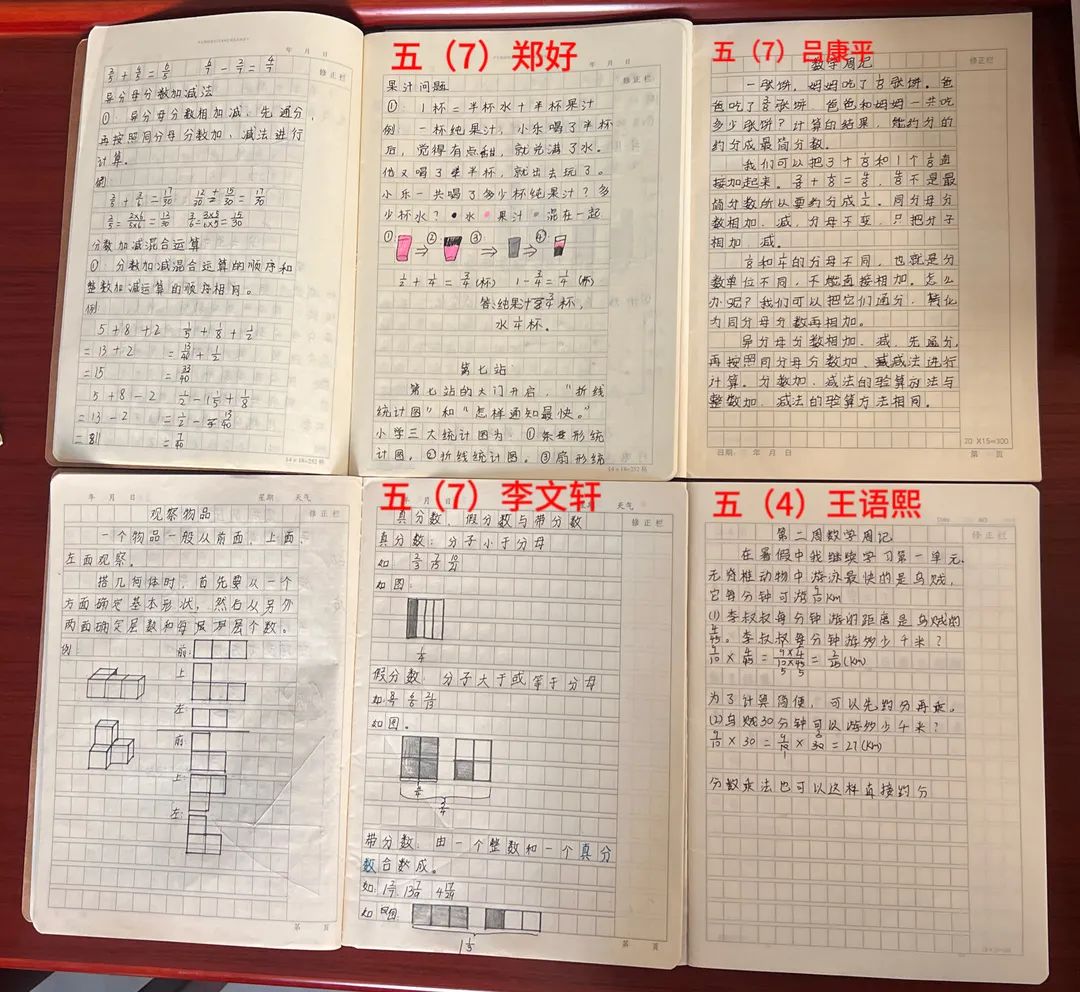 年 月 日
修正栏
3/5 + 3/5 = 6/5 6/7 - 2/7 = 4/7
异分母分数加减法
①：异分母分数相加减，先通分，
再按照同分母分数加、减法进行
计算。
例：
分数加减混合运算
①：分数加减混合运算的顺序和
整数加减运算的顺序相同。
例：
5+8+2 1/5+1/8+1/2
=13+2 =13/40+1/2
=15 =33/40
5+8-2
=13-2
14×18=252格
五（7）郑好
年 月 日
修正栏
果汁问题
①：1杯=半杯水+半杯果汁
例：一杯纯果汁，小乐喝了半杯
后，觉得有点甜，就兑满了水。
他又喝了半杯，就出去玩了。
小乐一共喝了多少杯纯果汁？多
少杯水？ 水 果汁 混在一起
① ⇒ ② ⇒ ③ ⇒ ④
1/2+1/4=3/4(杯) 1-3/4=1/4(杯)
答：纯果汁3/4杯，
水1/4杯。
第七站：
第七站的大门开启，“折线
统计图”和“怎样通知最快。”
小学三大统计图为：①条形统
计图。②折线统计图。③扇形统
14×18=252格
五（7）吕康平
数学周记
修正栏
一张饼，妈妈吃了 张饼。爸
爸吃了 张饼，爸爸和妈妈一共吃
多少张饼？计算的结果，能约分的
约分成最简分数。
我们可以把3个1/8和1个1/8直
接加起来。3/8+1/8=4/8，4/8不是最
简分数所以要约分成1/2。同分母分
数相加、减，分母不变，只把分子
相加、减。
和1/4的分母不同，也就是分
数单位不同，不能直接相加。怎么
办呢？我们可以把它们通分，转化
为同分母分数再相加。
异分母分数相加、减，先通分，
再按照同分母分数加、减法进行
计算。分数加、减法的验算方法与
整数加、减法的验算方法相同。
20×15=300
日期： 年 月 日
第 页
年 月 日 星期 天气
修正栏
观察物品
一个物品一般从前面，上面
左面观察。
搭几何体时，首先要从一个
方面确定基本形状，然后从另外
两面确定层数和每层个数。
例：
前：
上
左
前：
上：
左：
第 页
五（7）李文轩
天气
修正栏
真分数，假分数与带分数
真分数：分子小于分母
如
如图：
1/4
假分数：分子大于或等于分母
如：
如图。
带分数：由一个整数和一个真分
数合数成。
如：
如图：
第 页
五（4）王语熙
修正栏
第二周数学周记
在暑假中我继续学习第一单元。
无脊椎动物中游泳最快的是乌贼，
它每分钟可游9/10km
(1)李叔叔每分钟游的距离是乌贼的
4/45。李叔叔每分钟游多少千米？
9/10×4/45=
为了计算简便，可以先约分再乘。
(2)乌贼30分钟可以游多少千米？
9/10×30=9/10×30=27(km)
分数乘法也可以这样直接约分